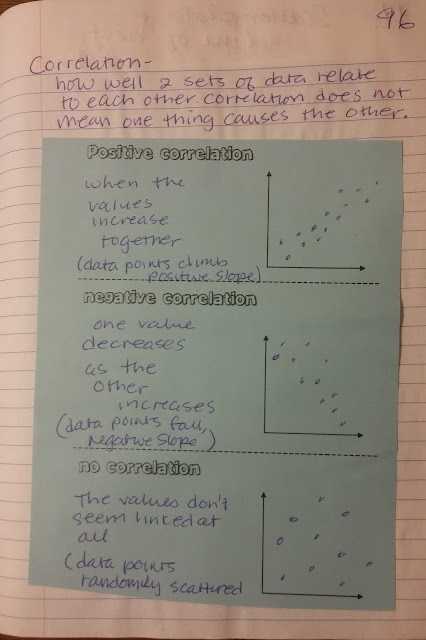 96
Correlation-
how well 2 sets of data relate
to each other correlation does not
mean one thing causes the other.
Positive correlation
when the
values
increase
together
(data points climb
positive slope)
negative correlation
one value
decreases
as the
other
increases
(data points fall,
negative slope)
no correlation
The values don't
seem linked at
all
(data points
randomly scattered